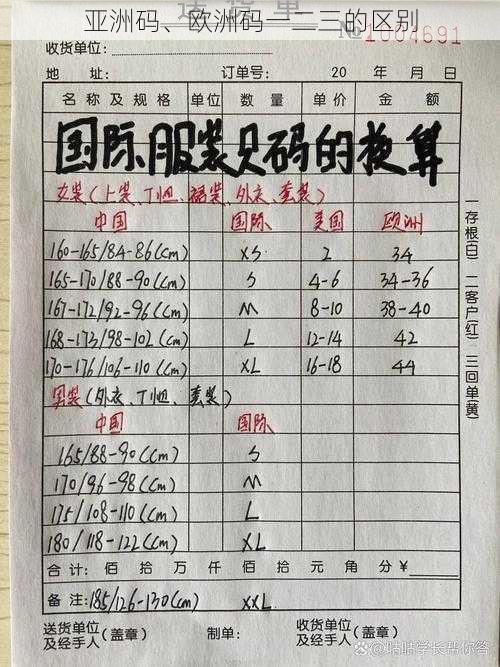 亚洲码、欧洲码一二三的区别
送货单
№1004691
收货单位：
地 址： 订单号： 20 年 月 日
名称及规格 单位 数量 单价 金额
国际服装尺码的换算
女装（上装、T恤、裙装、外衣、套装）
中国 国际 美国 欧洲
160-165/84-86(cm) XS 2 34
165-170/88-90(cm) S 4-6 34-36
167-172/92-96(cm) M 8-10 38-40
168-173/98-102(cm) L 12-14 42
170-176/106-110(cm) XL 16-18 44
男装（外衣、T恤、套装）
中国 国际
165/88-90(cm) S
170/96-98(cm) M
175/108-110(cm) L
180/118-122(cm) XL
合计： 佰 拾 万 仟 佰 拾 元 角 分￥
备注：185/126-130(cm) XXL
送货单位及经手人（盖章） 制单： 收货单位及经手人（盖章）
一存根(白) 二客户(红) 三回单(黄)